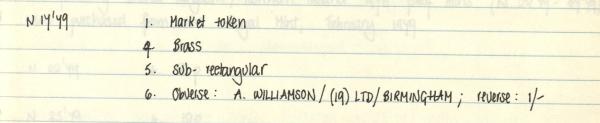 N 17'79 1. Market token
4. Brass
5. Sub-rectangular
6. Obverse: A. WILLIAMSON / (19) LTD / BIRMINGHAM; reverse: 1/-